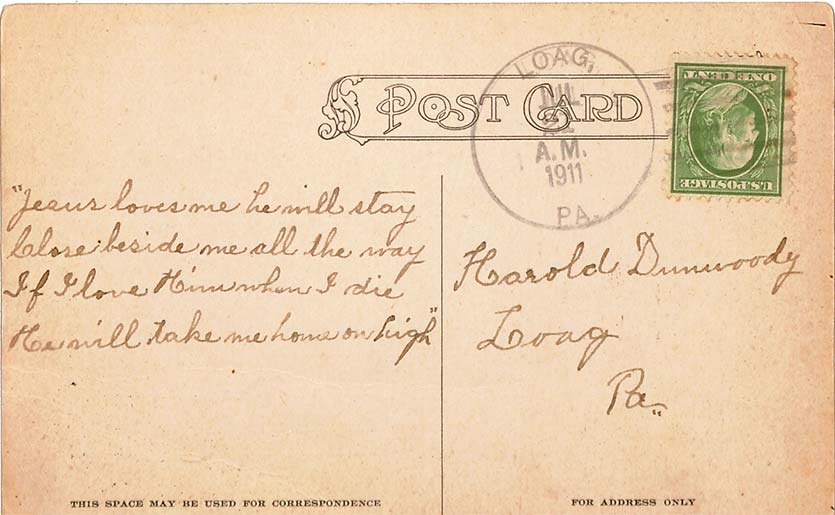 POST CARD
LOAG,
JUL
A.M.
1911
PA.
ONE CENT
U.S. POSTAGE
"Jesus loves me he will stay
Close beside me all the way
If I love Him when I die
He will take me home on high"
Harold Dunwoody
Loag
Pa.
THIS SPACE MAY BE USED FOR CORRESPONDENCE
FOR ADDRESS ONLY